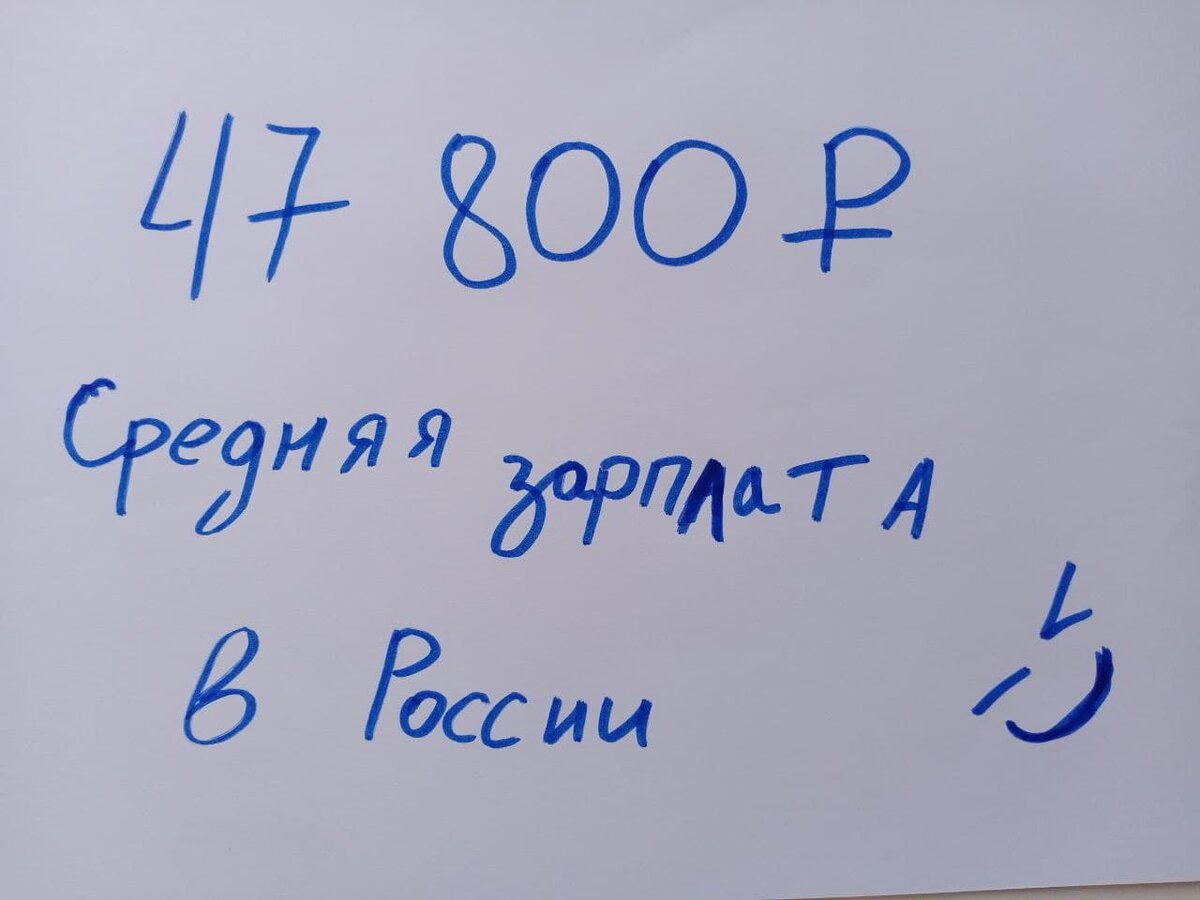 47 800 ₽
Средняя зарплата
в России